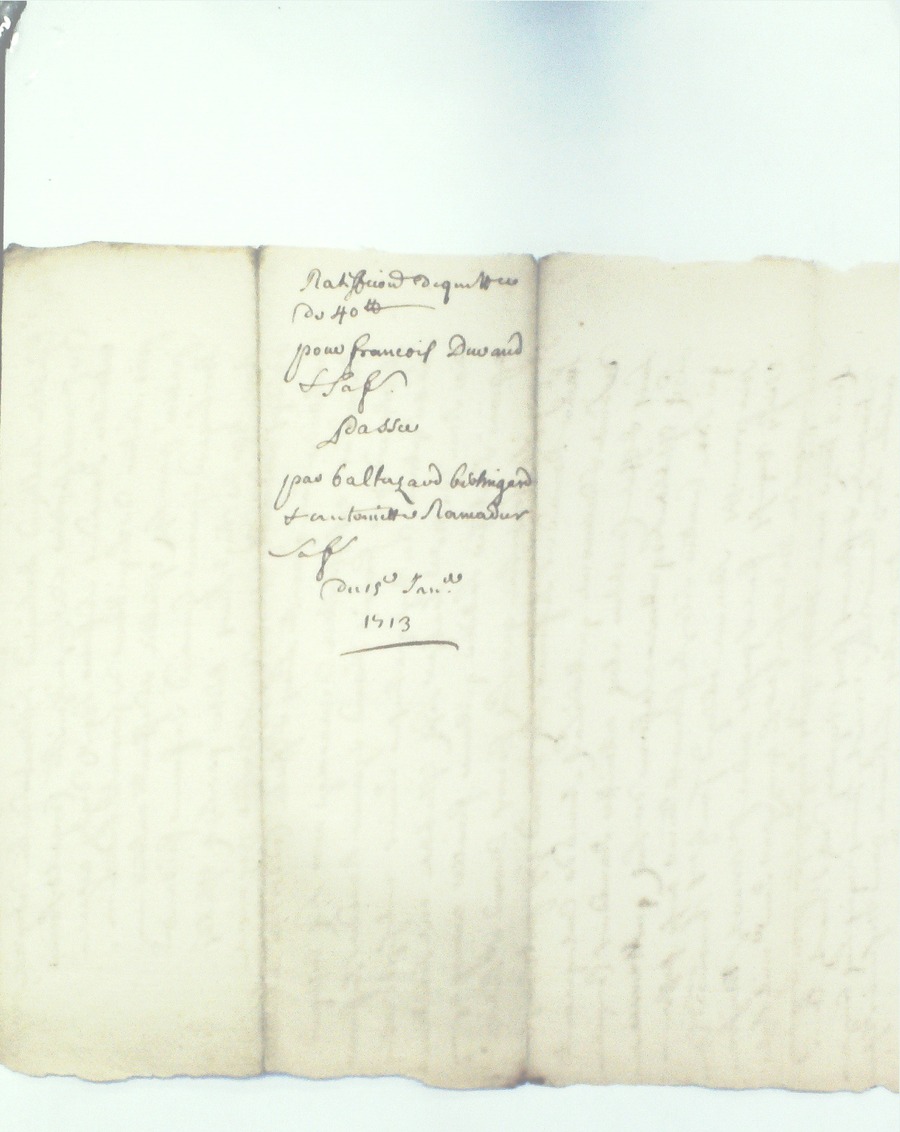 Ratiffication de quittce
de 40tt
pour francois Durand
& Sa fe.
Passée
par baltazard
& antoinette Ramadier
Sa fe
du 15e Janer
1713